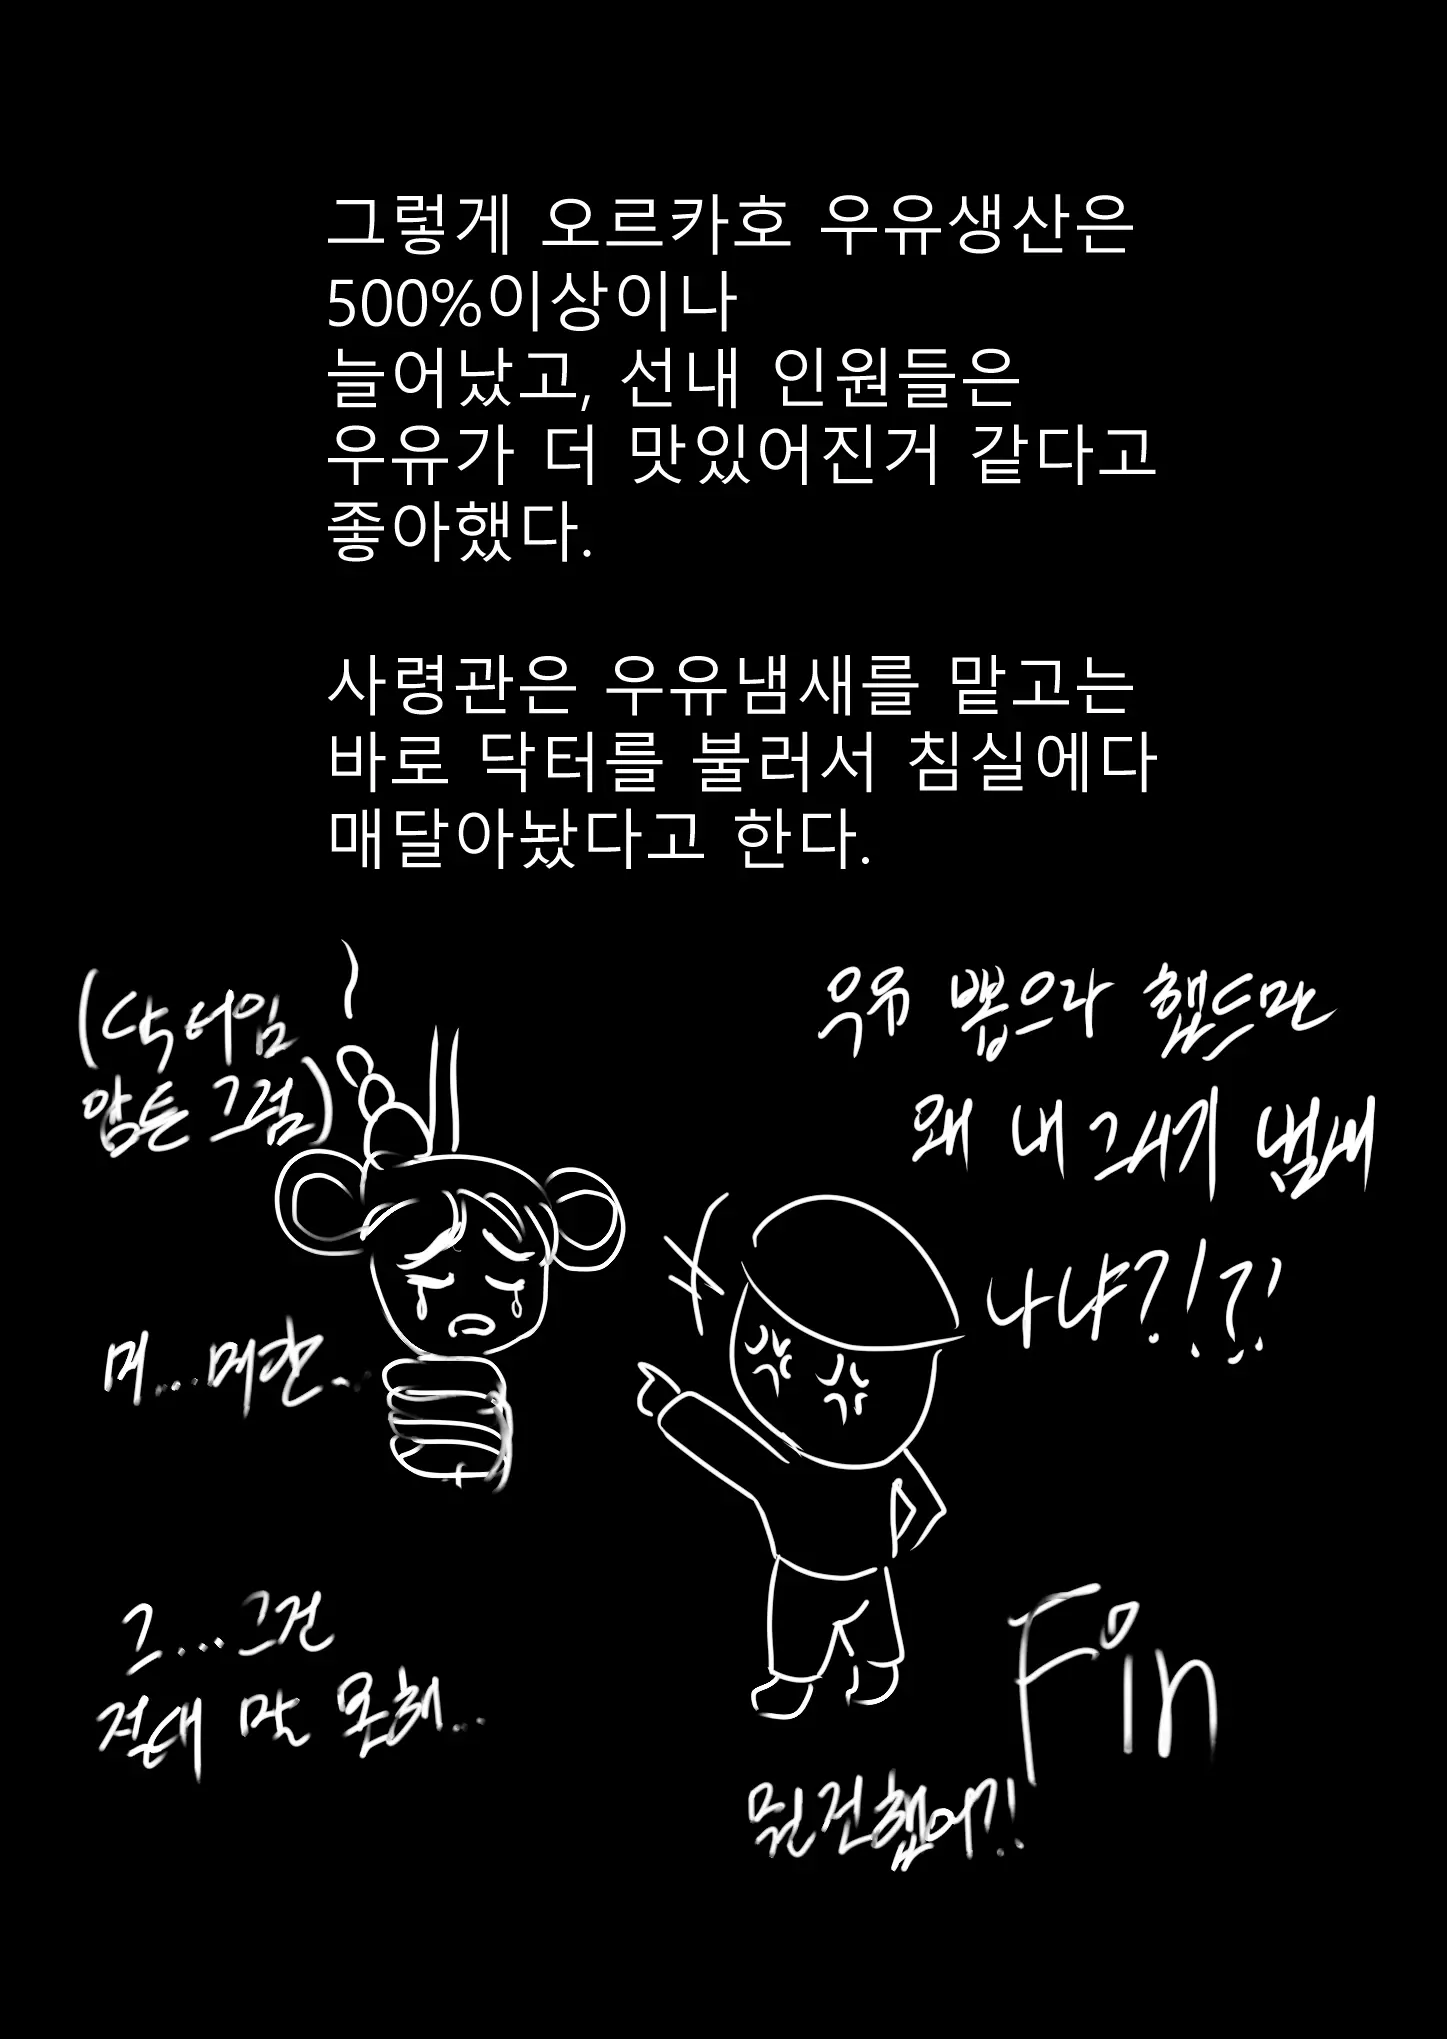 그렇게 오르카호 우유생산은
500%이상이나
늘어났고, 선내 인원들은
우유가 더 맛있어진거 같다고
좋아했다.
사령관은 우유냄새를 맡고는
바로 닥터를 불러서 침실에다
매달아놨다고 한다.
(닥터임
암튼 그럼)
우유 뽑으라 했드만
왜 내 그시기 냄새
나냐?!?!
머...머리카...
그...그건
절대 말 못해...
뭔 짓 했어?!
Fin